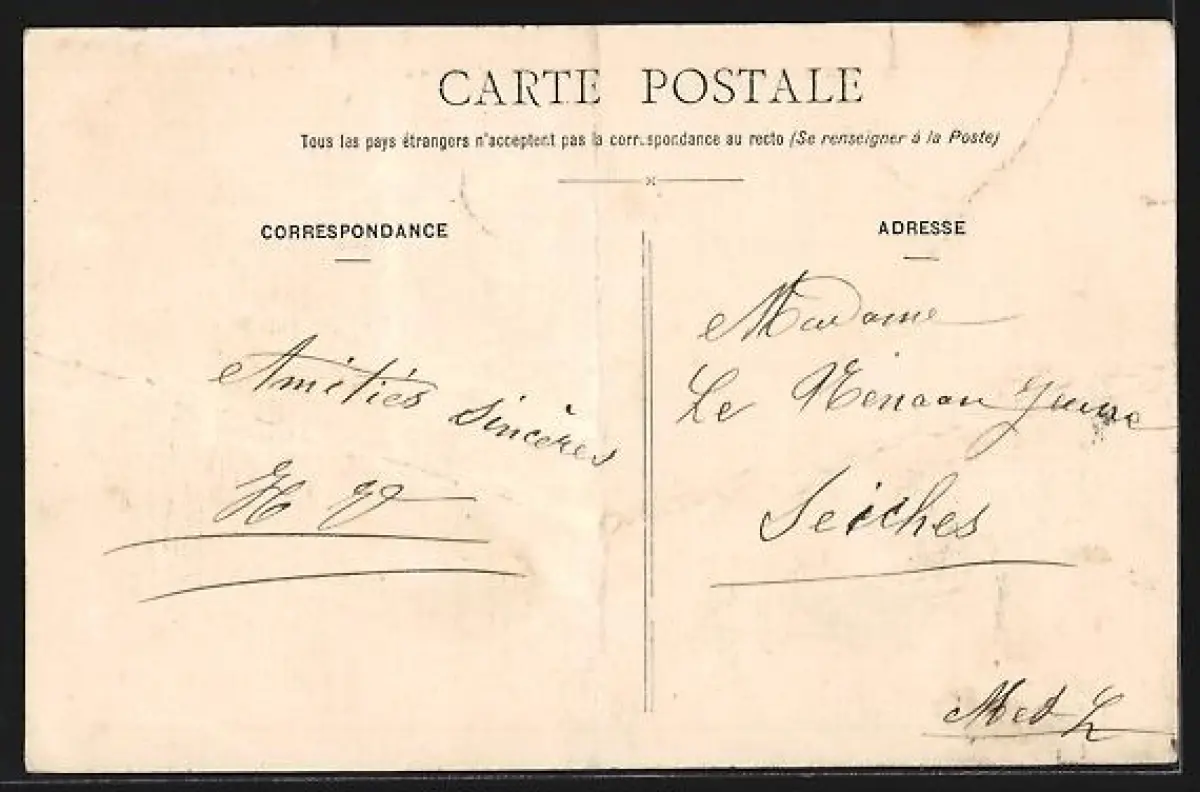 CARTE POSTALE
Tous les pays étrangers n'acceptent pas la correspondance au recto (Se renseigner à la Poste)
CORRESPONDANCE
Amitiés sincères
ADRESSE
Madame
Le
Seiches
M et L